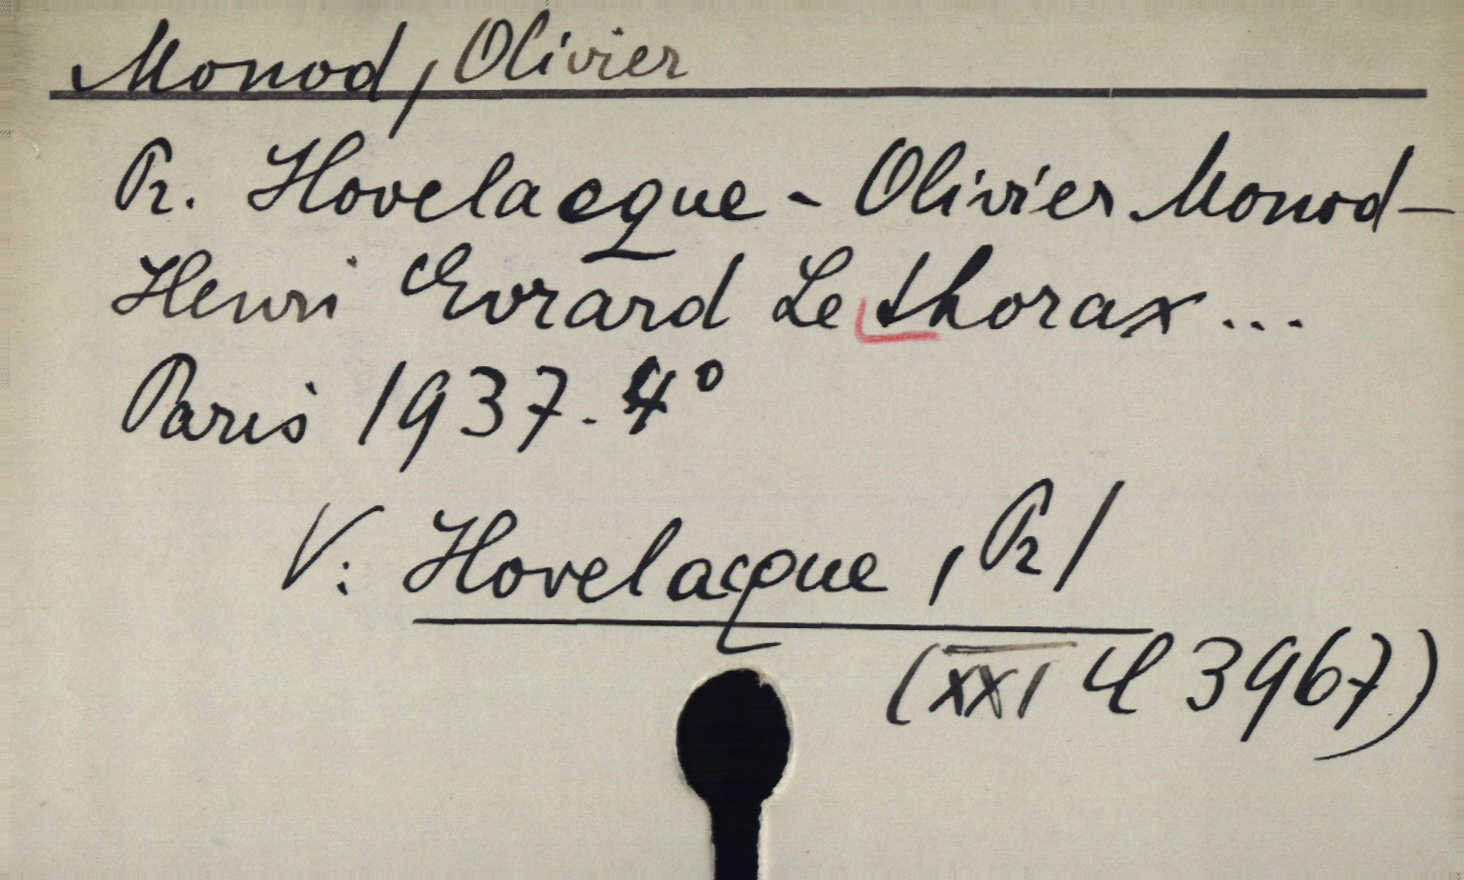 Monod, Olivier
R. Hovelacque - Olivier Monod -
Henri Evrard Le thorax...
Paris 1937. 4°
V: Hovelacque, R/
(XXI 3967)